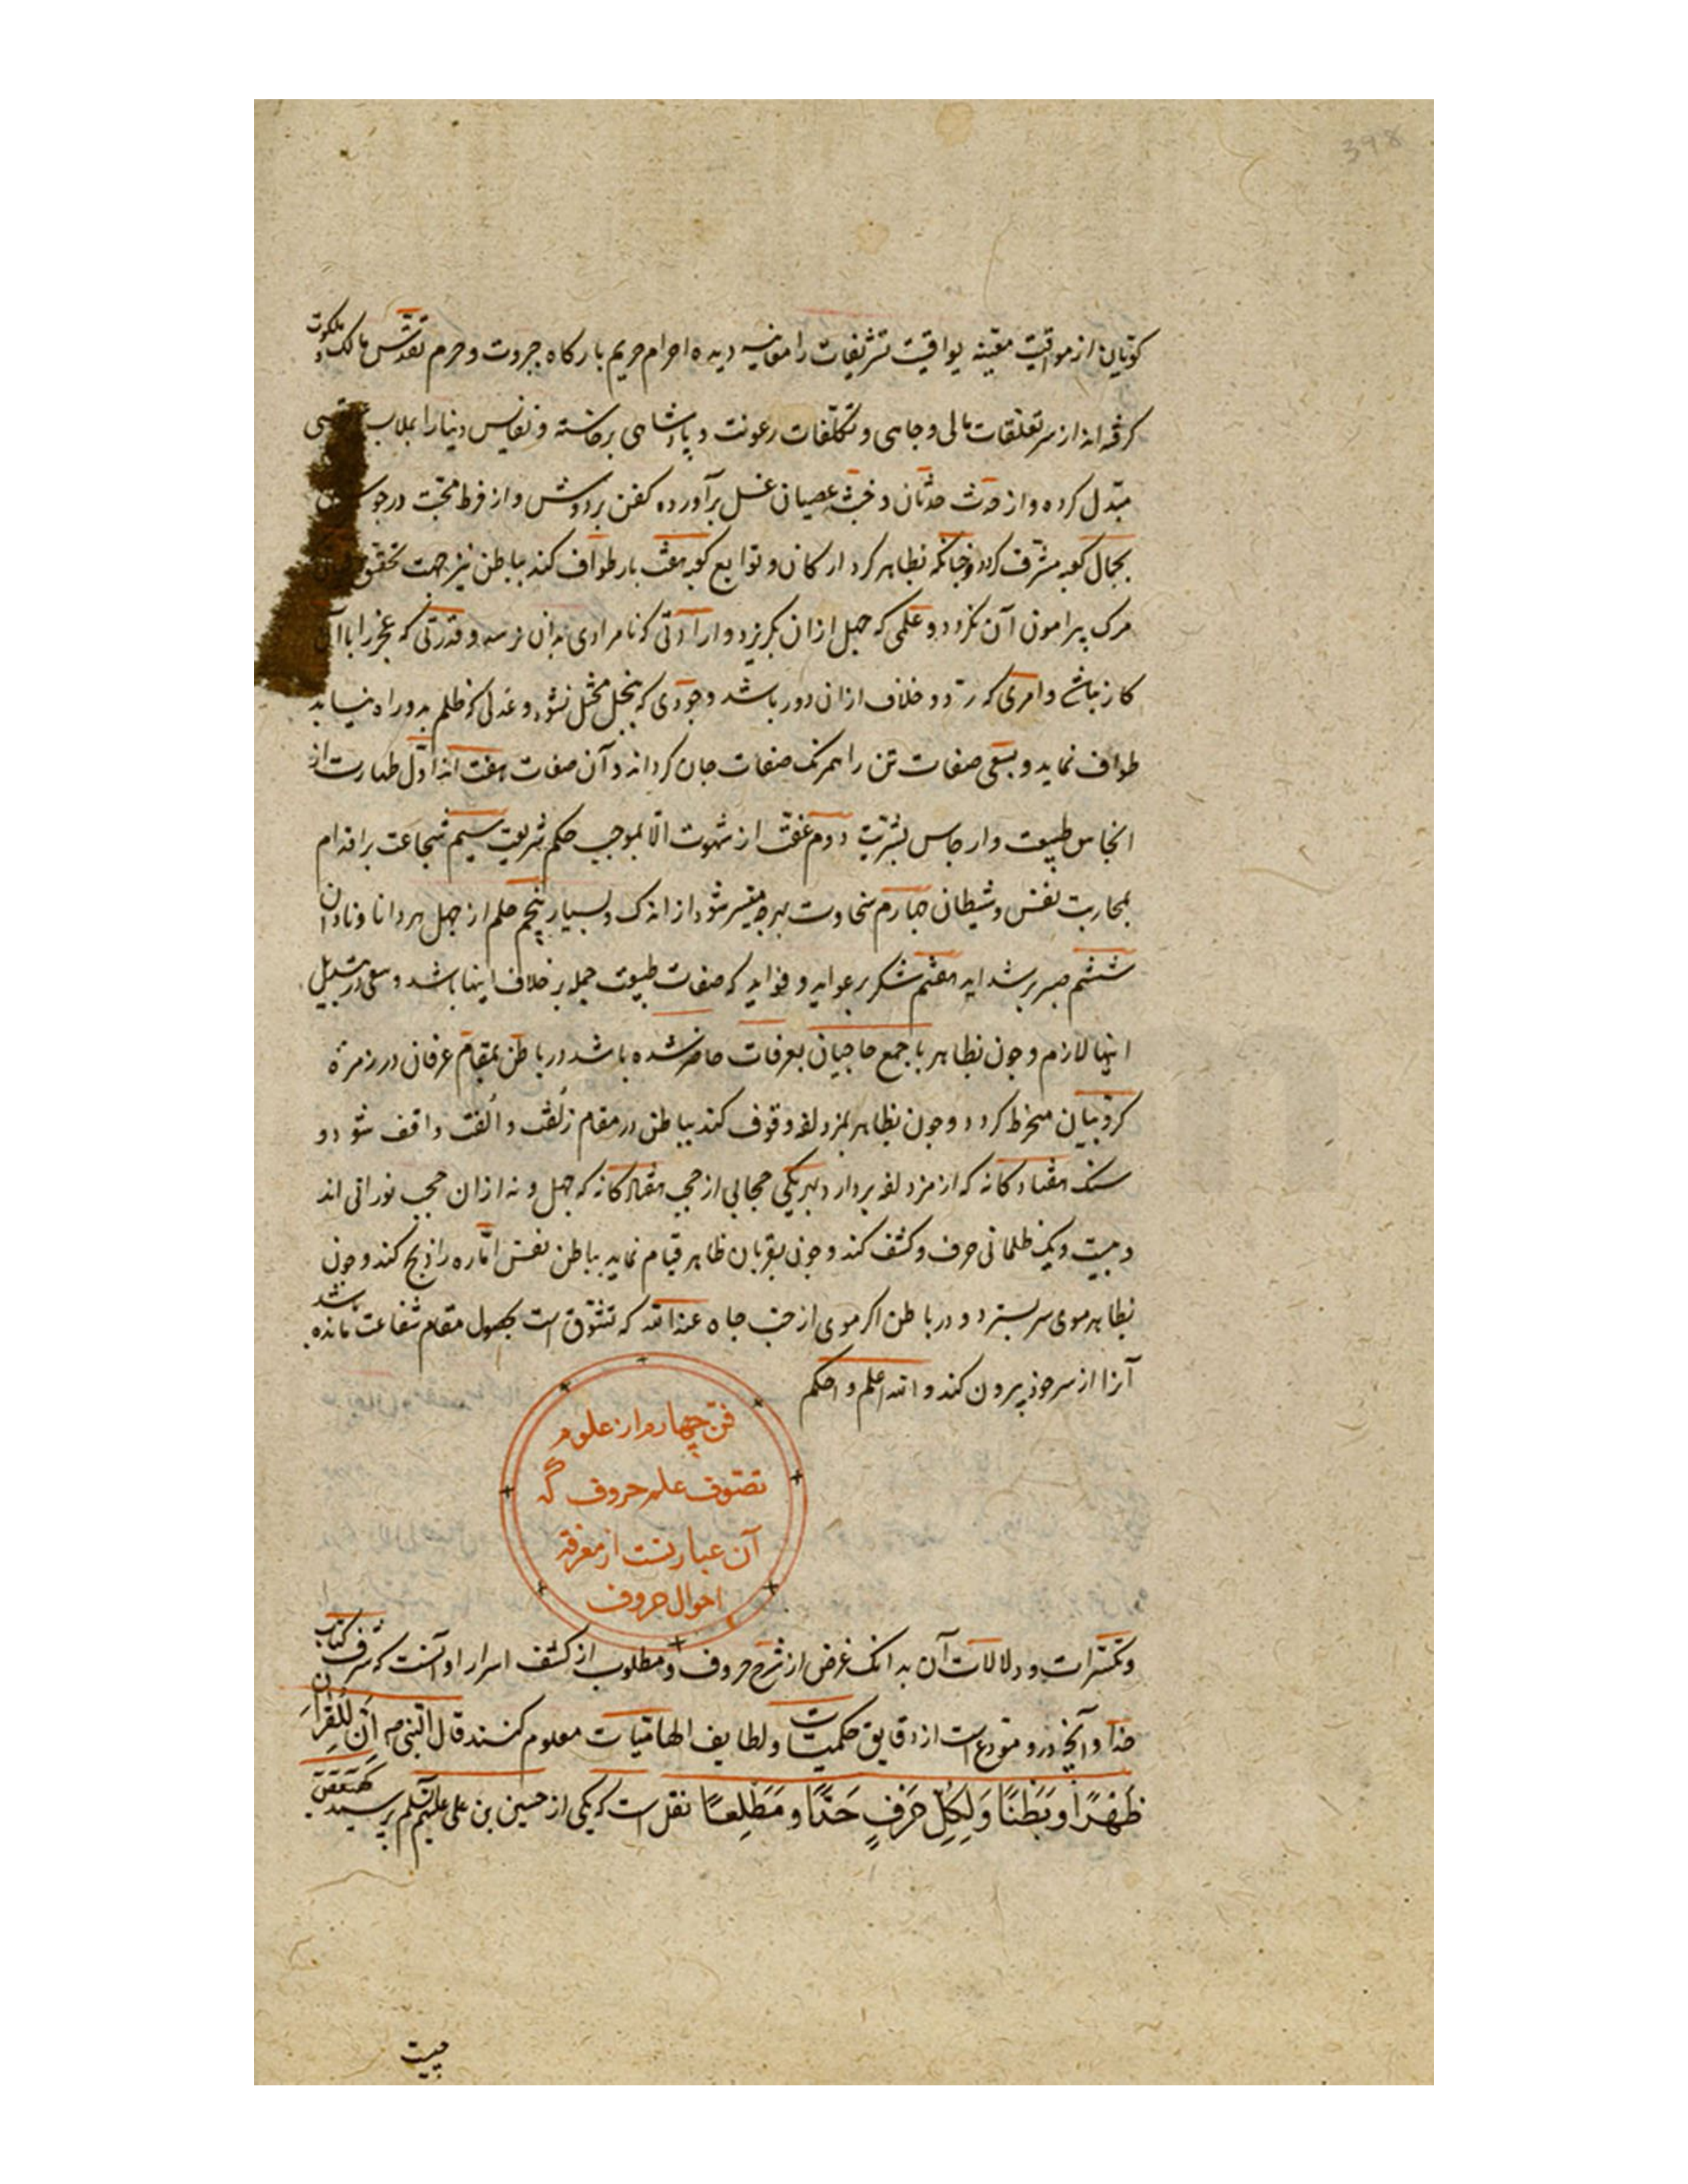 398
کوئیان از مواقیت معینه یواقیت تشریفات را معاینه دیده احرام حریم بارکاه جبروت و حرم تقدس مالک ملکوت
کرفته اند از سر تعلقات مالی و جاهی و تکلفات رعونت و پادشاهی برخاسته و نفایس دنیا را بملابس
مبدل کرده و از حدث حدثان و خبث عصیان غسل برآورده کفن بر دوش و از فرط محبت در جوش
بجمال کعبه مشرف کردد و چنانکه بظاهر کرد ارکان و توابع کعبه هفت بار طواف کند بباطن نیز جهت تحقق
مرک پیرامون آن نکردد و علمی که جهل ازان بکریزد و ارادتی که نامرادی بدان نرسد و قدرتی که عجز را با آن
کار نباشد و امری که رد و خلاف ازان دور باشد و جودی که ببخل مختل نشود و عدلی که ظلم بدو راه نیابد
طواف نماید و بسعی صفات تن را همرنک صفات جان کرداند و آن صفات هفت اند اول طهارت از
انجاس طبیعت و ارجاس بشریت دوم عفت از شهوت الا بموجب حکم شریعت سیم شجاعت بر اقدام
بمحاربت نفس و شیطان چهارم سخاوت بهرچه میسر شود از اندک و بسیار پنجم حلم از جهل هر دانا و نادان
ششم صبر بر شداید هفتم شکر بر عواید و فواید که صفات طبیعت جمله بر خلاف اینها باشد و سعی در تبدیل
اینها لازم و چون بظاهر با جمع حاجیان بعرفات حاضر شده باشد در باطن بمقام عرفان در زمره
کروبیان منخرط کردد و چون بظاهر بمزدلفه وقوف کند بباطن در مقام زلفت و الفت واقف شود و
سنک هفتادکانه که از مزدلفه بردارد بهر یکی حجابی از حجب هفتادکانه که چهل و نه ازان حجب نورانی اند
و بیست و یک ظلمانی حرف و کشف کند و چون بقربان ظاهر قیام نماید بباطن نفس اماره را ذبح کند و چون
بظاهر موی سر بسترد و در باطن اکر موی از حب جاه عند الله که تشوق است بحصول مقام شفاعت مانده باشد
آنرا از سر خود بیرون کند و الله اعلم و احکم
فن چهارم از علوم
تصوف علم حروف که
آن عبارتست از معرفة
احوال حروف
و تکسرات و دلالات آن بدانک غرض از شرح حروف و مطلوب از کشف اسرار او آنست که شرف کتاب
خدا و آنچه درو مودع است از دقایق حکمیات و لطایف الهامیات معلوم کنند قال النبی ص اَنَّ لِلقُرآنِ
ظَهْرًا وَ بَطْنًا وَ لِکُلِّ حَرْفٍ حَدًّا وَ مَطْلِعًا نقل است که یکی از حسین بن علی علیهم السلم پرسید کهیعص
چیست